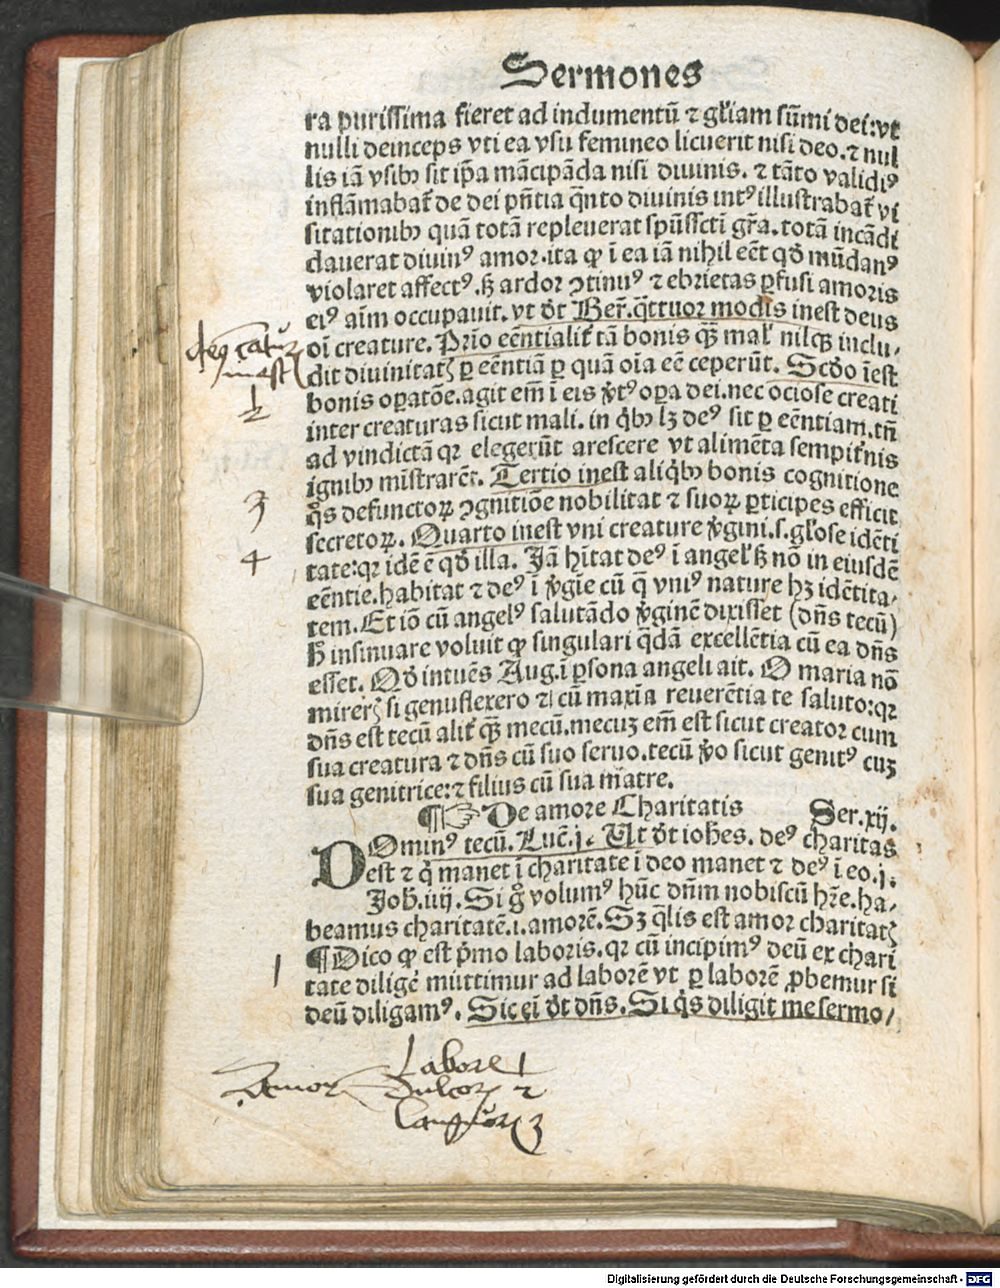 Sermones
ra purissima fieret ad indumentū ⁊ gl'iam sūmi dei: vt
nulli deinceps vti ea vsu femineo licuerit nisi deo. ⁊ nul
lis iā vsibꝫ sit ip̄a mācipāda nisi diuinis. ⁊ tāto validiꝰ
inflāmabat̄ de dei pn̄tia q̄nto diuinis intꝰ illustrabat̄ vi
sitationibꝫ quā totā repleuerat spūssctī gr̄a. totā incādi
dauerat diuinꝰ amor. ita ꝙ ī ea iā nihil eēt qd̄ mūdanꝰ
violaret affectꝰ. sꝫ ardor ꝯtinuꝰ ⁊ ebrietas ꝑfusi amoris
eiꝰ aīm occupauit. vt d̄t Ber̄. q̄ttuor modis inest deus
oī creature. Prīo eēntialit̄ tā bonis qꝫ̄ mal' nilqꝫ inclu⸗
dit diuinitatꝭ ꝑ eēntiā ꝑ quā oīa eē ceperūt. Scd̄o īest
bonis oꝑatōe. agit em̄ ī eis v̄tꝰ oꝑa dei. nec ociose creati
inter creaturas sicut mali. in q̄bꝫ lꝫ deꝰ sit ꝑ eēntiam. tn̄
ad vindictā qꝛ elegerūt arescere vt alimēta sempit̄nis
ignibꝫ mīstrarēt. Tertio inest aliq̄bꝫ bonis cognitione
q̄s defunctoꝝ ꝯgnitiōe nobilitat ⁊ suoꝝ ꝑticipes efficit
secretoꝝ. Quarto inest vni creature v̄gini. s. gl'ose idēti
tate: qꝛ idē ē qd̄ illa. Jā hītat deꝰ ī angel' sꝫ nō in eiusdē
eēntie. habitat ⁊ deꝰ ī v̄gīe cū q̄ vniꝰ nature hꝫ idētita⸗
tem. Et iō cū angelꝰ salutādo v̄ginē dixisset (dn̄s tecū)
h̄ insinuare voluit ꝙ singulari q̄dā excellētia cū ea dn̄s
esset. Qd̄ intuēs Aug. ī ꝑsona angeli ait. O maria nō
mirerꝭ si genuflexero ⁊ cū maxīa reuerētia te saluto: qꝛ
dn̄s est tecū alit̄ qꝫ̄ mecū. mecuꝫ em̄ est sicut creator cum
sua creatura ⁊ dn̄s cū suo seruo. tecū v̄o sicut genitꝰ cuꝫ
sua genitrice: ⁊ filius cū sua mātre.
¶ ☞ De amore Charitatis Ser. xij.
DOminꝰ tecū. Luc̄. j. Ut d̄t ioh̄es. deꝰ charitas
est ⁊ q̄ manet ī charitate ī deo manet ⁊ deꝰ ī eo. j.
Joh̄. iiij. Si gͦ volumꝰ hūc dn̄m nobiscū hr̄e. ha⸗
beamus charitatē. i. amorē. Sꝫ q̄lis est amor charitatꝭ
¶ Dico ꝙ est p̄mo laboris. qꝛ cū incipimꝰ deū ex chari
tate diligē mittimur ad laborē vt ꝑ laborē ꝓbemur si
deū diligamꝰ. Sic eī d̄t dn̄s. Si q̄s diligit me sermo⸗
2
3
4
1
Labore 1
Amor Dulcor 2
Languor 3
Digitalisierung gefördert durch die Deutsche Forschungsgemeinschaft - DFG